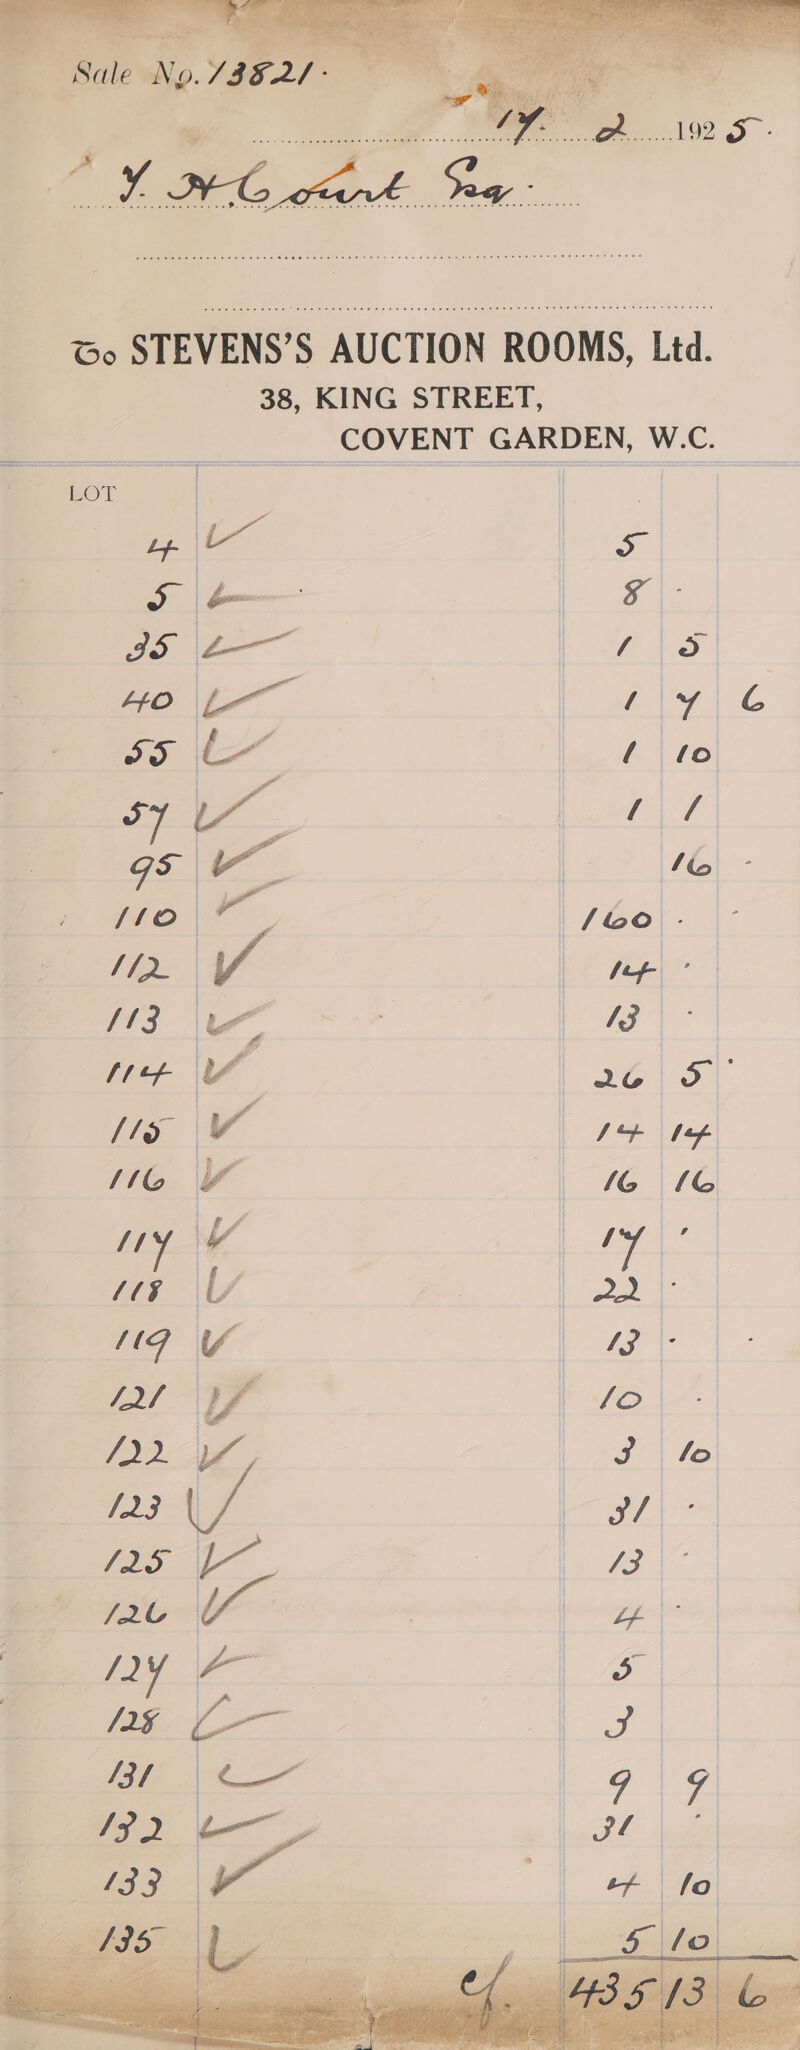 Sale No. 13821.
17. 2 1925.
T. A Court Esq.
To STEVENS'S AUCTION ROOMS, Ltd.
38, KING STREET,
COVENT GARDEN, W.C.
LOT
4 5
5 8 .
35 1 5
40 1 7 6
55 1 10
57 1 1
95 16 -
110 160 . -
112 14 .
113 13 .
114 26 5 .
115 14 14
116 16 16
117 17 .
118 22 .
119 13 . .
121 10 .
122 3 10
123 31 .
125 13 .
126 4 .
127 5
128 3
131 9 9
132 31 .
133 4 10
135 5 10
cf. 435 13 6